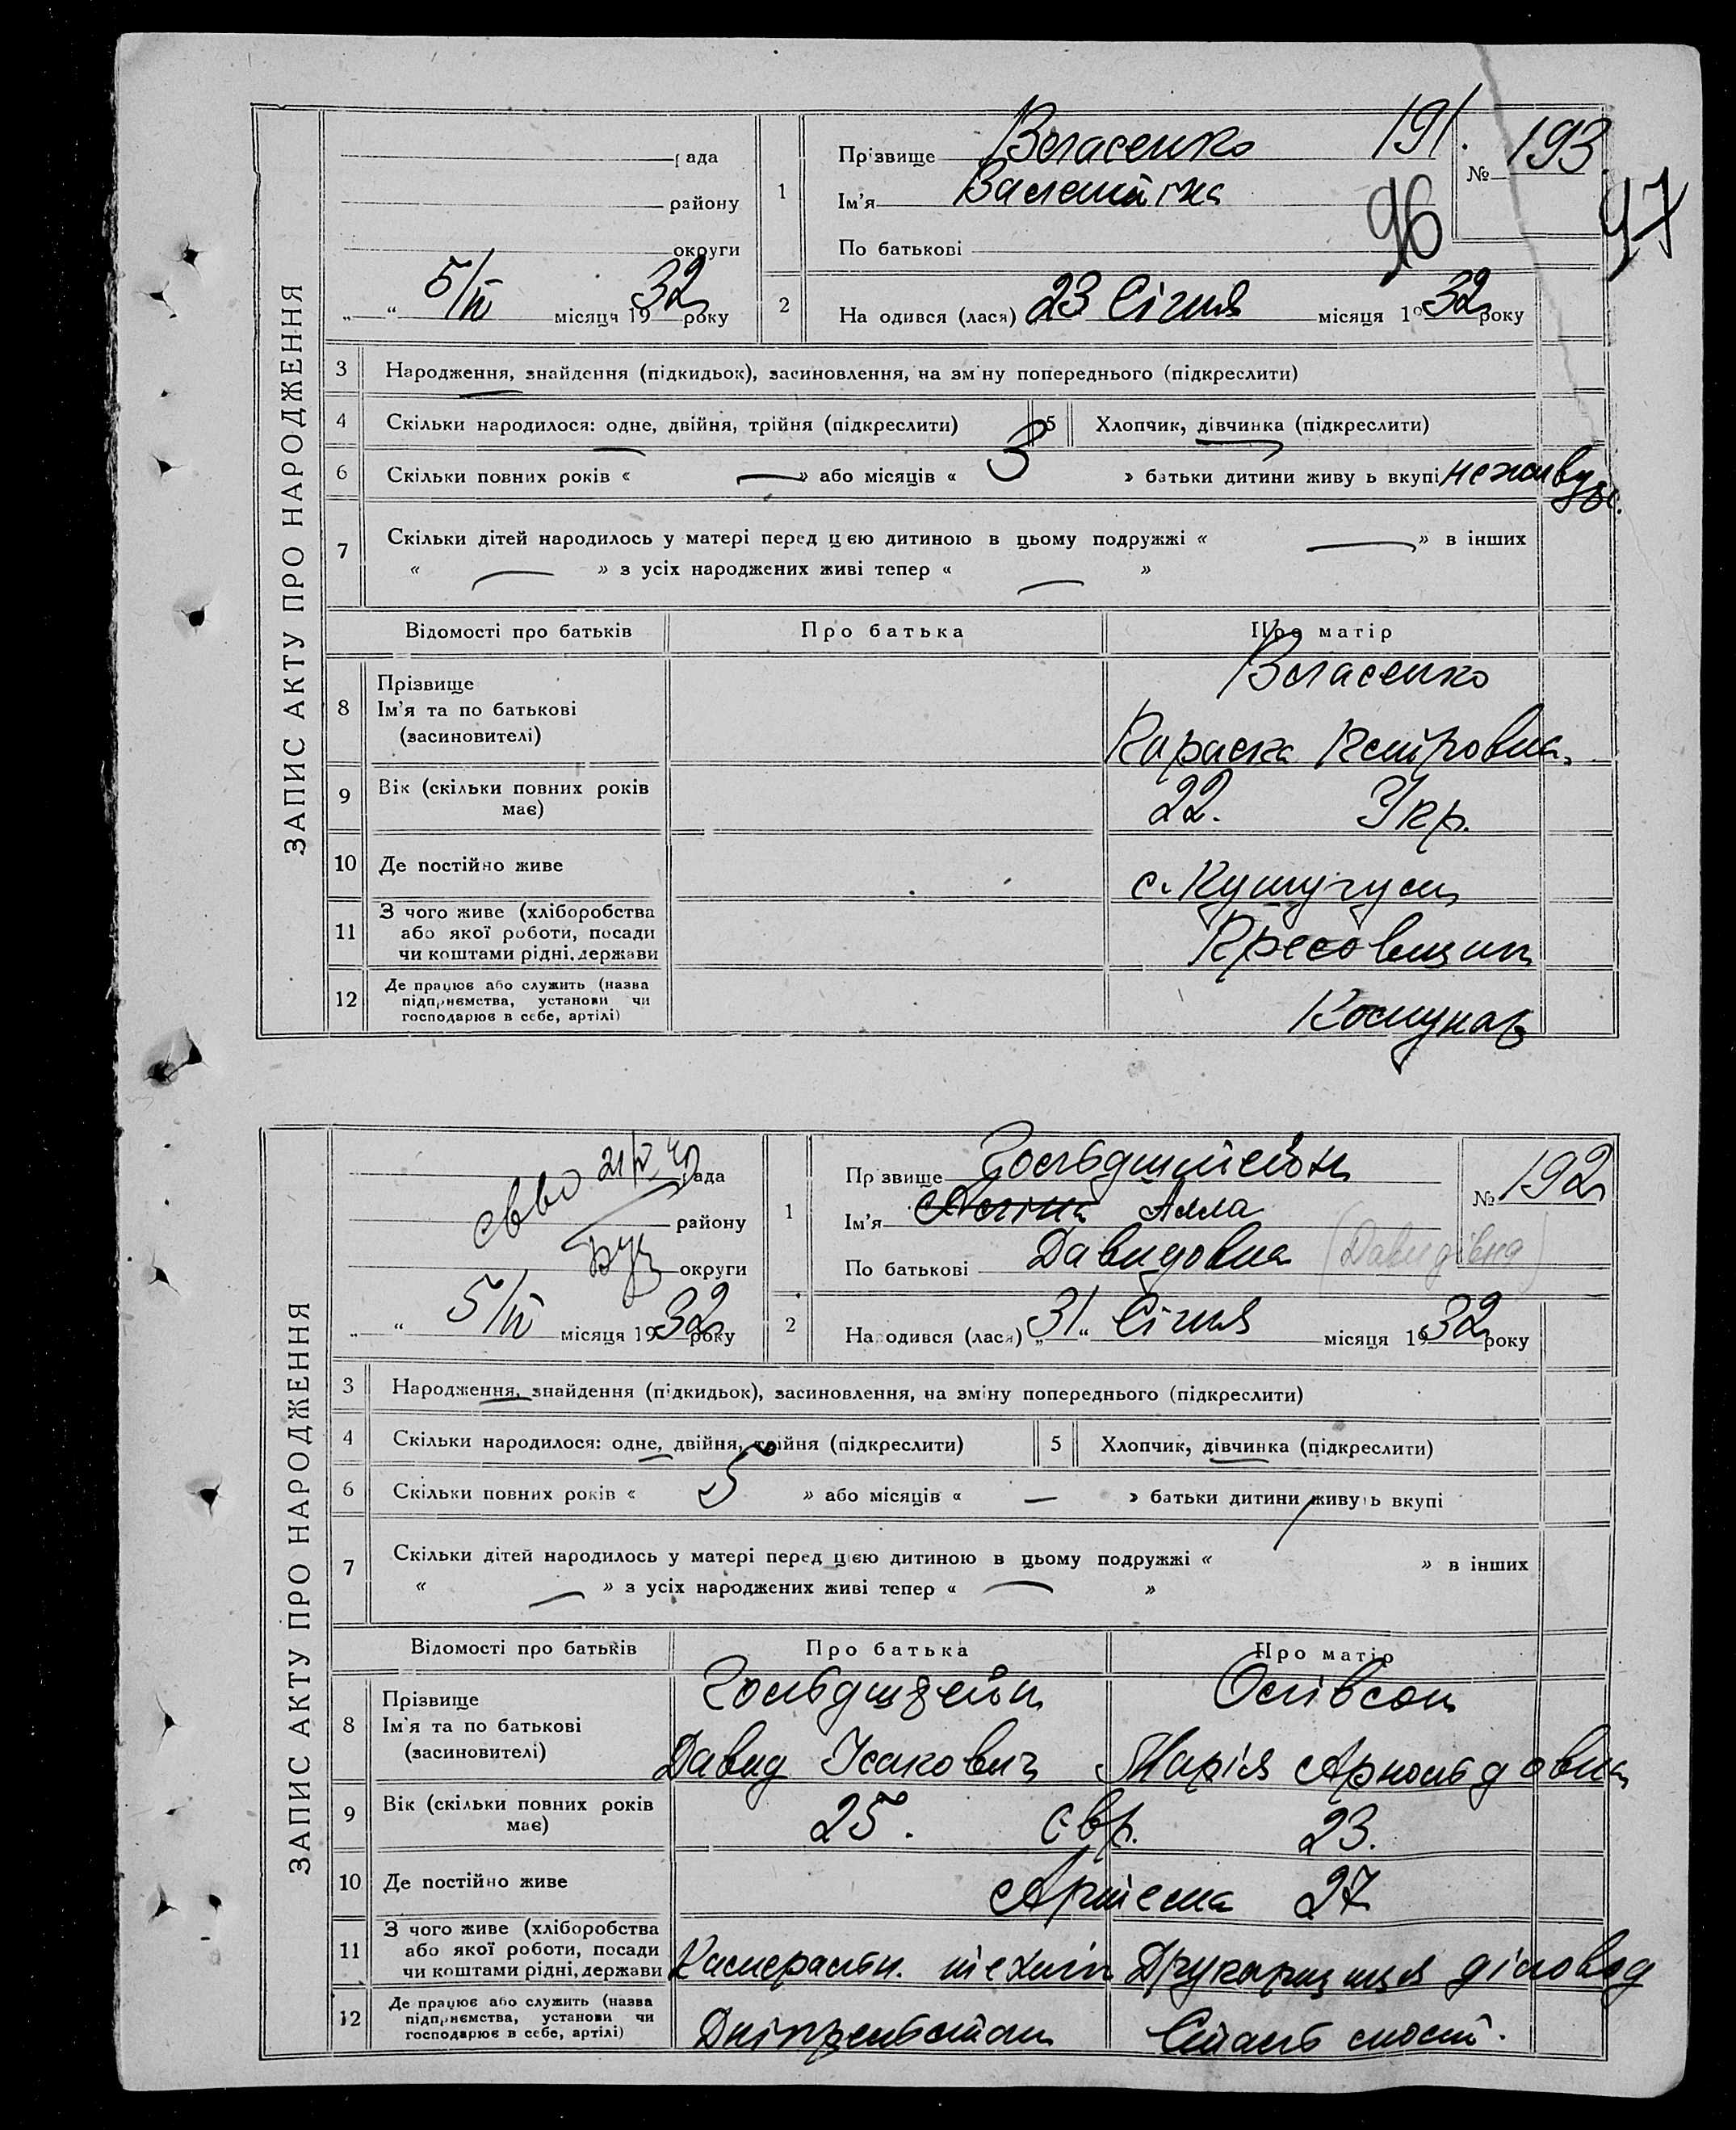 ЗАПИС АКТУ ПРО НАРОДЖЕННЯ
рада
району
округи
„ “ 5/IV місяця 1932 року
1
Прізвище Власенко 191.
Ім’я Валентіна
По батькові
№ 193
96
97
2
Народився (лася) „23 Січня місяця 1932 року
3 Народження, знайдення (підкидьок), засиновлення, на зміну попереднього (підкреслити)
4 Скільки народилося: одне, двійня, трійня (підкреслити) 5 Хлопчик, дівчинка (підкреслити)
6 Скільки повних років « — » або місяців « 3 » батьки дитини живуть вкупі не живуть.
7 Скільки дітей народилось у матері перед цією дитиною в цьому подружжі « — » в інших
« — » з усіх народжених живі тепер « — »
Відомості про батьків Про батька Про матір
8 Прізвище
Ім’я та по батькові
(засиновителі)
Власенко
Параска Петровна.
9 Вік (скільки повних років
має)
22. Укр.
10 Де постійно живе
с. Кушугум
11 З чого живе (хліборобства
або якої роботи, посади
чи коштами рідні, держави
12 Де працює або служить (назва
підприємства, установи чи
господарює в себе, артілі)
Комунар
ЗАПИС АКТУ ПРО НАРОДЖЕННЯ
рада
району
округи
„ “ 5/IV місяця 1932 року
1
Прізвище Гольдштейн
Ім’я Алла
По батькові Давидовна (Давидівна)
№ 192
2
Народився (лася) „31“ Січня місяця 1932 року
3 Народження, знайдення (підкидьок), засиновлення, на зміну попереднього (підкреслити)
4 Скільки народилося: одне, двійня, трійня (підкреслити) 5 Хлопчик, дівчинка (підкреслити)
6 Скільки повних років « 5 » або місяців « — » батьки дитини живуть вкупі
7 Скільки дітей народилось у матері перед цією дитиною в цьому подружжі « » в інших
« — » з усіх народжених живі тепер « — »
Відомості про батьків Про батька Про матір
8 Прізвище
Ім’я та по батькові
(засиновителі)
Гольдштейн
Давид Ісакович
Марія Арнольдовна
9 Вік (скільки повних років
має)
25. євр. 23.
10 Де постійно живе
Артема 27
11 З чого живе (хліборобства
або якої роботи, посади
чи коштами рідні, держави
технік
Друкарщиця діловод
12 Де працює або служить (назва
підприємства, установи чи
господарює в себе, артілі)
Сталь мост.